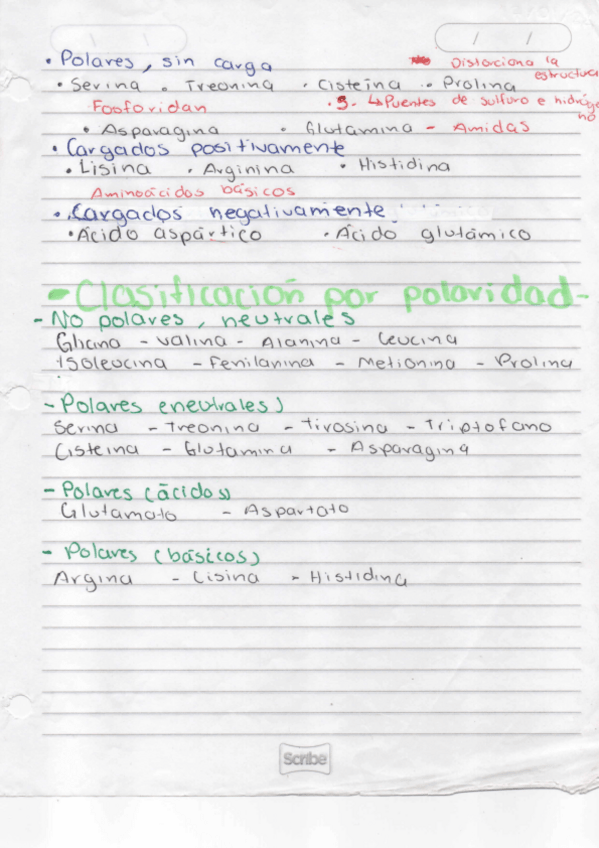 • Polares, sin carga
Distorciona la estructura
• Serina • Treonina • Cisteína • Prolina
Fosforidan • S. ↳ Puentes de sulfuro e hidrógeno
• Asparagina • Glutamina - Amidas
• Cargados positivamente
• Lisina • Arginina • Histidina
Aminoácidos básicos
• Cargados negativamente
• Ácido aspártico • Ácido glutámico
- Clasificación por polaridad -
- No polares, neutrales
Glicina - Valina - Alanina - Leucina
Isoleucina - Fenilanina - Metionina - Prolina
- Polares (neutrales)
Serina - Treonina - Tirosina - Triptofano
Cisteina - Glutamina - Asparagina
- Polares (ácidos)
Glutamato - Aspartato
- Polares (básicos)
Argina - Lisina - Histidina
Scribe